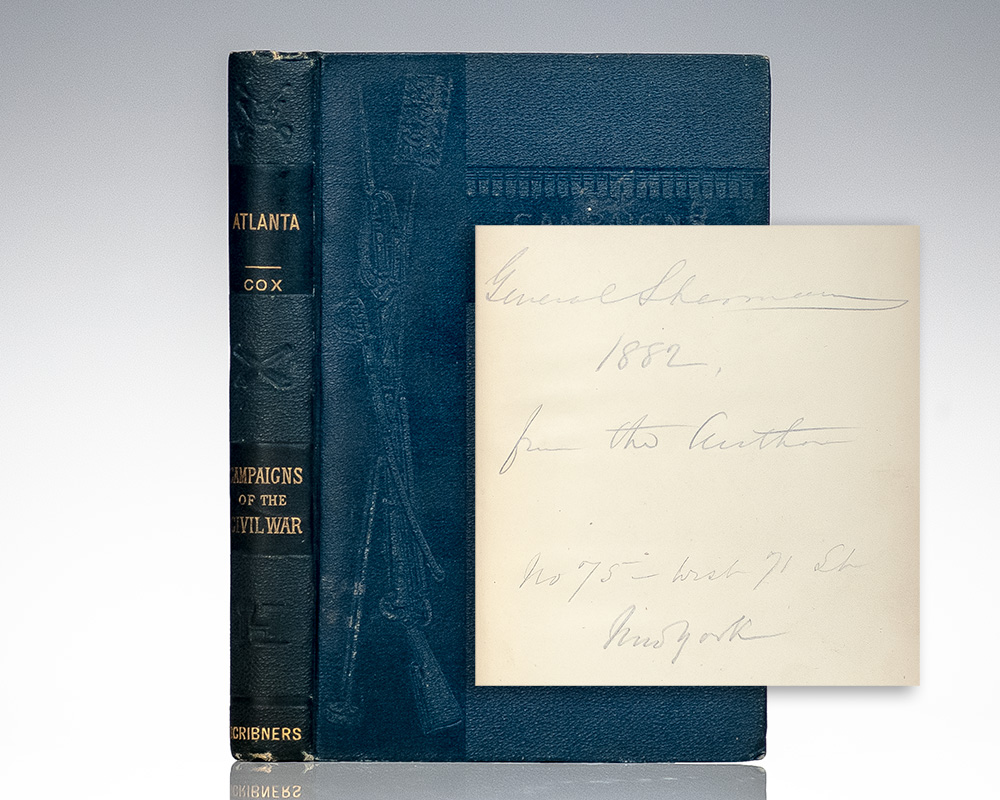 ATLANTA
COX
CAMPAIGNS
OF THE
CIVIL WAR
SCRIBNERS
CAMPAIGNS
General Sherman
1882,
from the Author
No 75 - West 71 St
New York
SCRIBNERS